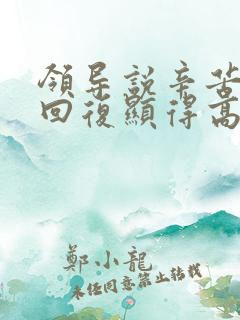 領导説辛苦
回復顯得高
鄭小龍
未经同意禁止转载